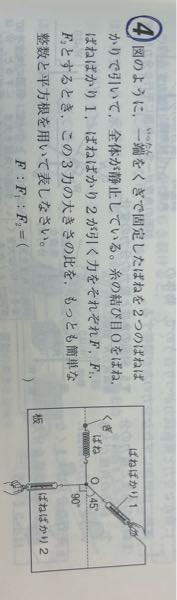 4 図のように、一端をくぎで固定したばねを2つのばねば
いったん
かりで引いて、全体が静止している。糸の結び目Oをばね、
ばねばかり1、ばねばかり2が引く力をそれぞれF、F₁、
F₂とするとき、この3力の大きさの比を、もっとも簡単な
整数と平方根を用いて表しなさい。
F：F₁：F₂＝(　　　)
ばねばかり1
くぎ
ばね
O
45°
90°
板
ばねばかり2